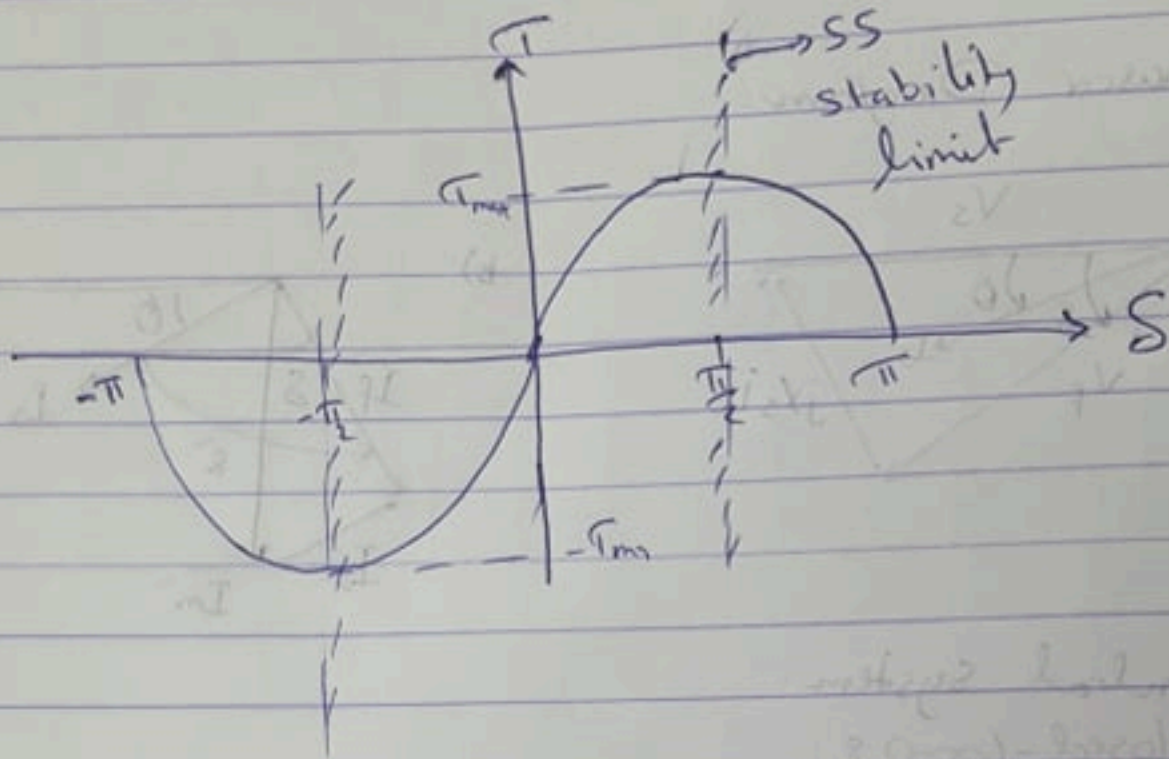 T
SS
stability
limit
Tmax
δ
-π
-π/2
π/2
π
-Tm